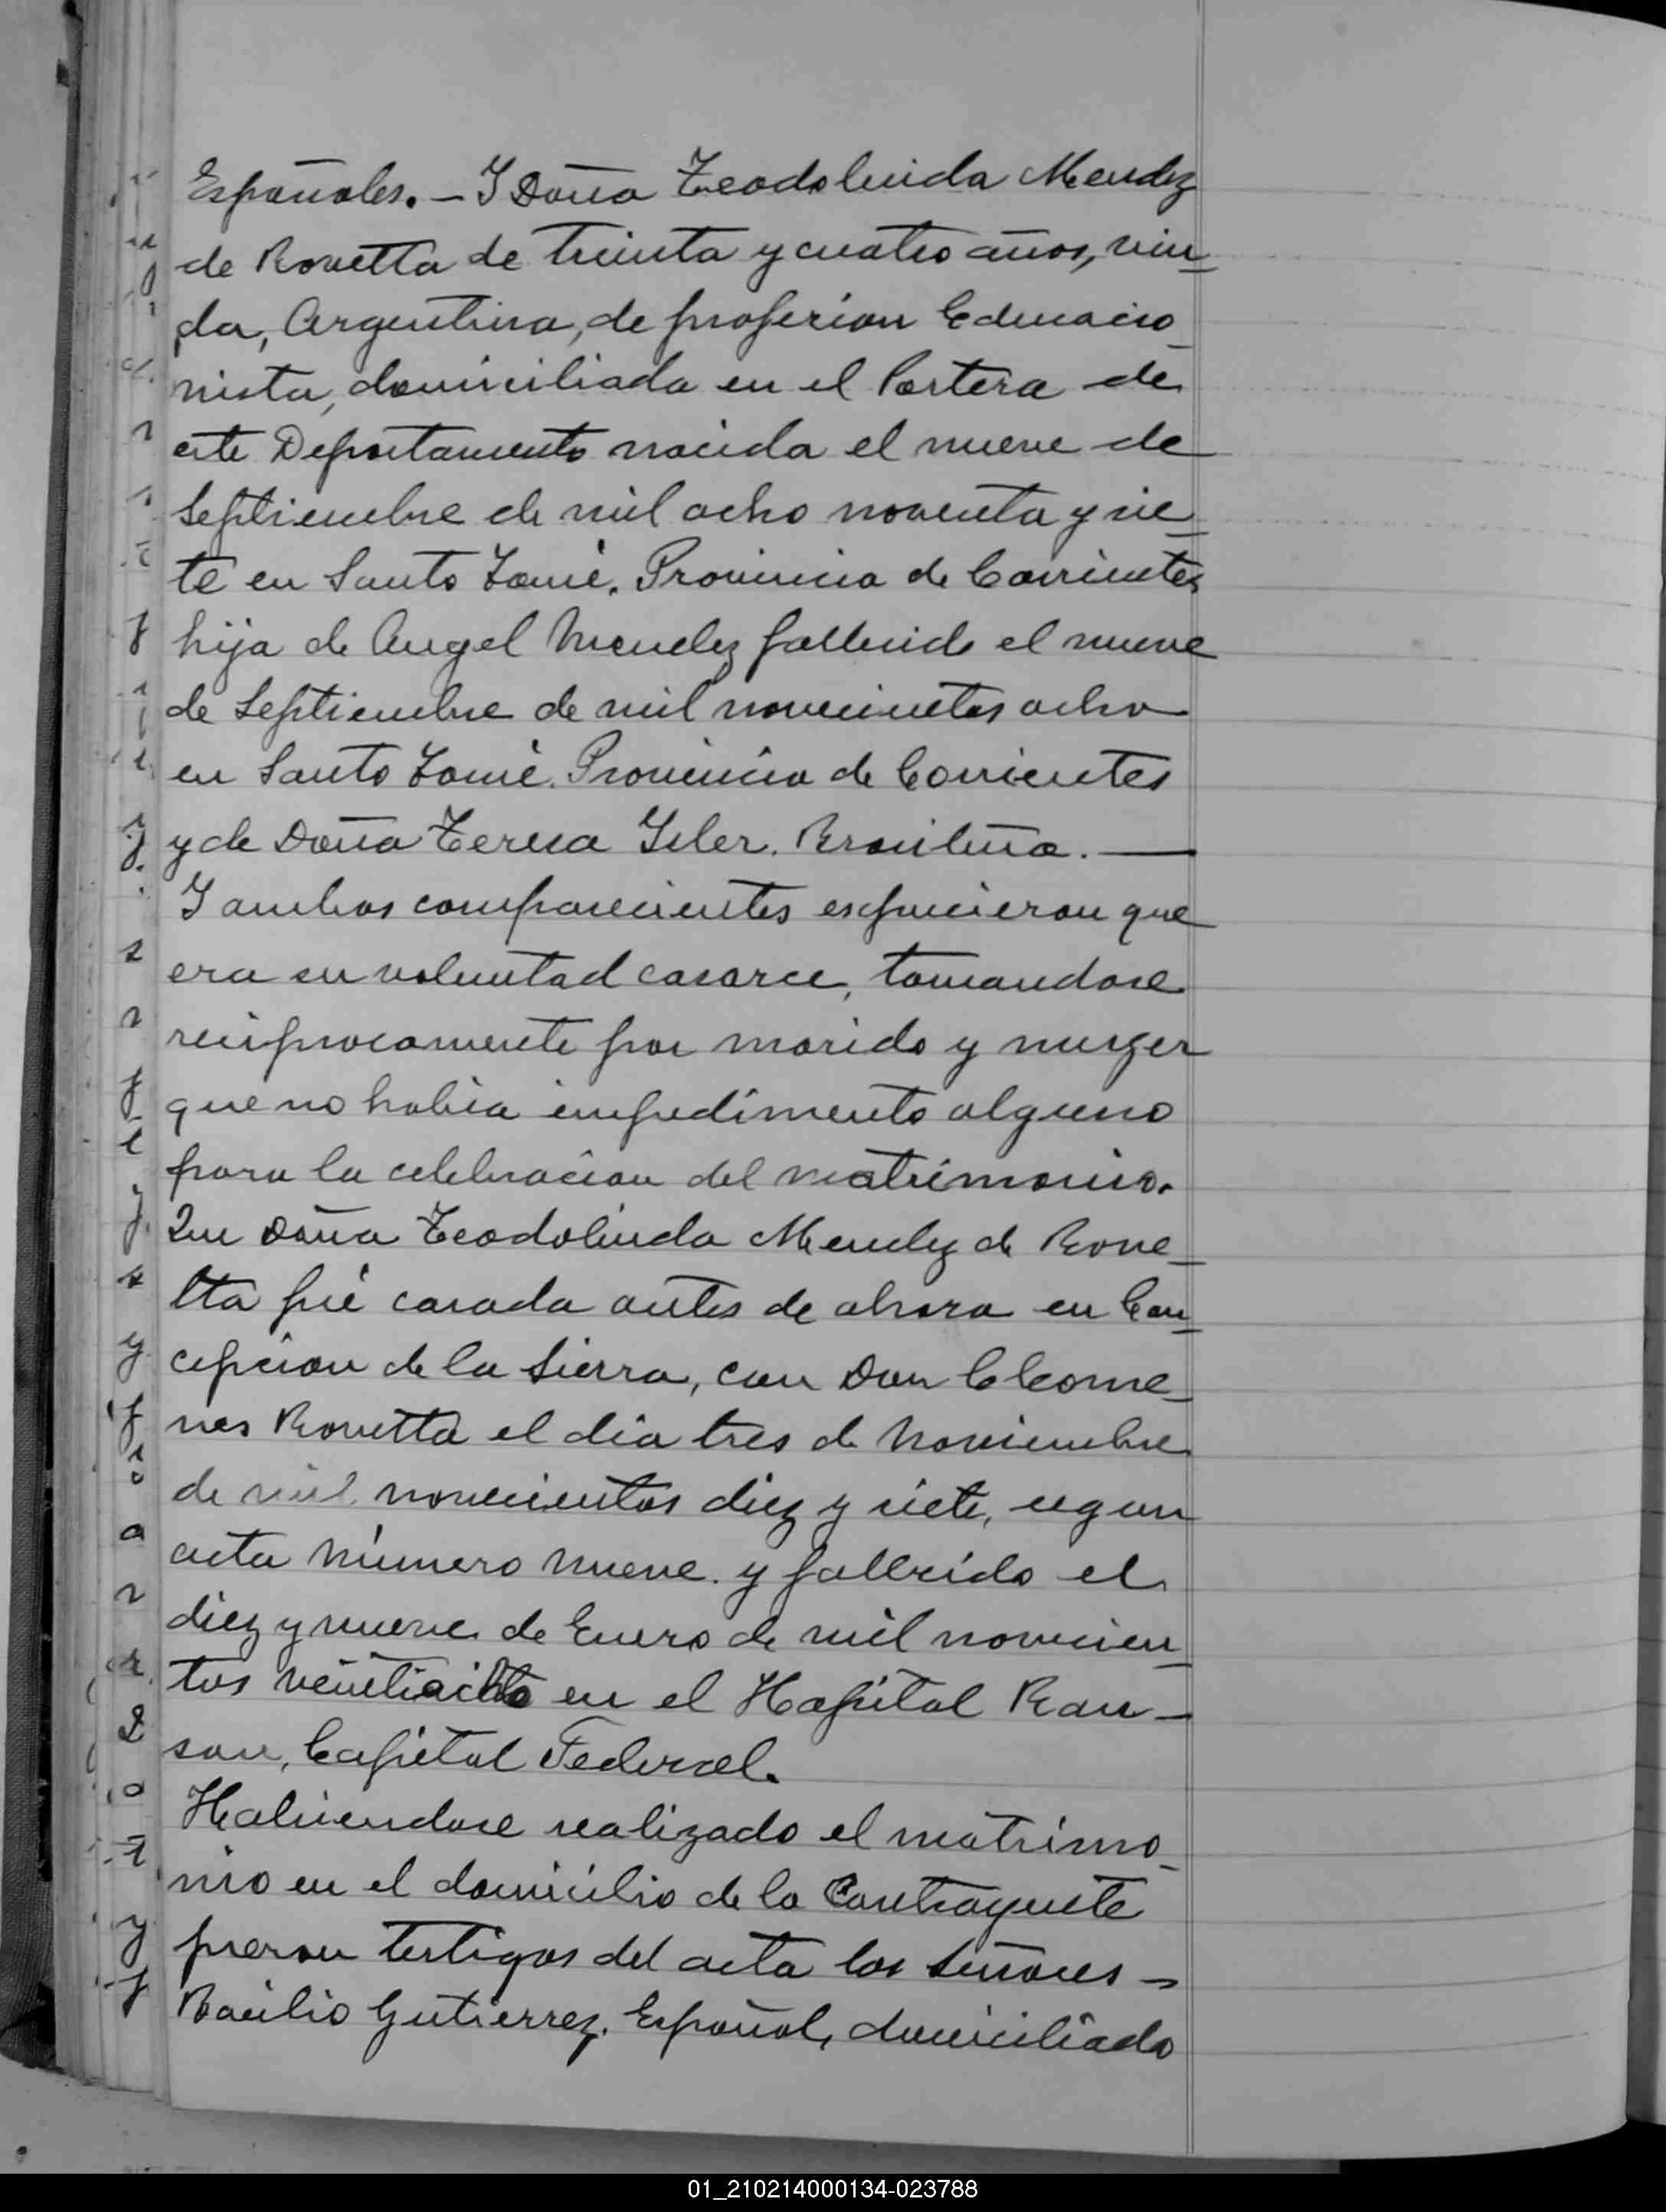 Españoles. – Y Doña Teodolinda Mendez
de Rovetta de treinta y cuatro años, viu-
da, Argentina, de profesion Educacio-
nista, domiciliada en el Portera de
este Departamento nacida el nueve de
Septiembre de mil ocho noventa y sie-
te en Santo Tomé. Provincia de Corrientes
hija de Angel Mendez fallecido el nueve
de Septiembre de mil novecientos ocho
en Santo Tomé. Provincia de Corrientes
y de Doña Teresa Isler. Brasileña. —
Y ambos comparecientes espucieron que
era su voluntad casarce, tomandose
reciprocamente por marido y muger
que no habia impedimento alguno
para la celebracion del matrimonio.
Que Doña Teodolinda Mendez de Rove-
tta fué casada antes de ahora en Con-
cepcion de la Sierra, con Don Cleome-
nes Rovetta el dia tres de Noviembre
de mil novecientos diez y siete, segun
acta número nueve. y fallecido el
diez y nueve de Enero de mil novecien-
tos veintiocho en el Hospital Raw-
son, Capital Federal.
Habiendose realizado el matrimo-
nio en el domicilio de la Contrayente
fueron testigos del acta los Señores -
Bacilio Gutierrez. Español, domiciliado
01_210214000134-023788